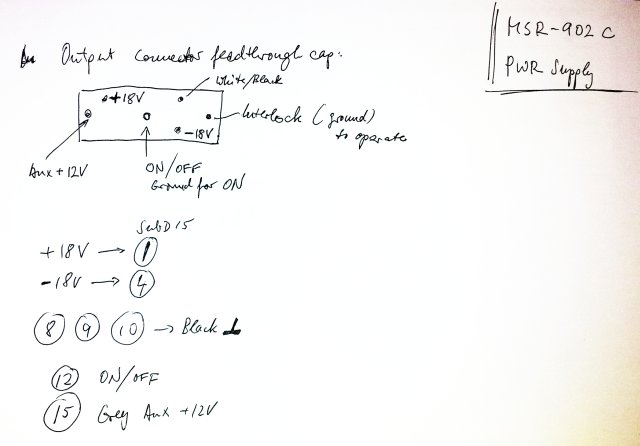 MSR-902C
PWR Supply
Output Connector feedthrough cap:
White/Black
+18V
Interlock (ground)
to operate
-18V
Aux +12V
ON/OFF
Ground for ON
SubD15
+18V → 1
-18V → 4
8 9 10 → Black ⊥
12 ON/OFF
15 Grey Aux +12V